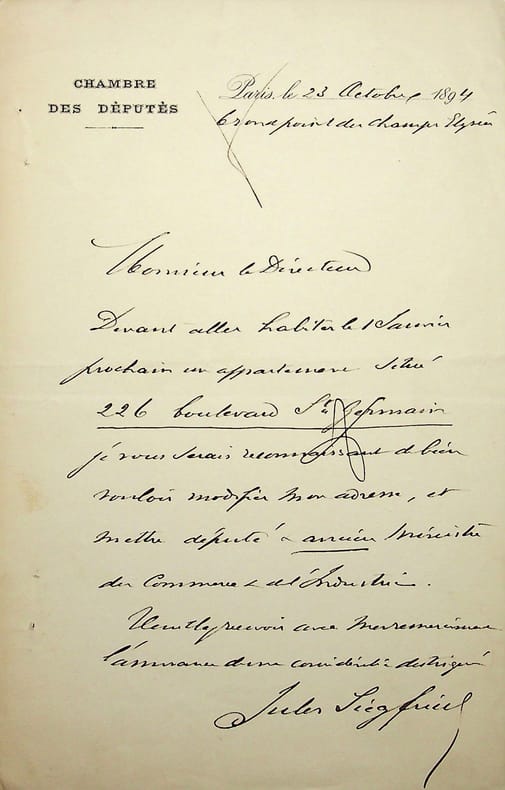 CHAMBRE
DES DÉPUTÉS
Paris, le 23 Octobre 1894
6 rond point des Champs Elysées
Monsieur le Directeur
Devant aller habiter le 1 Janvier
prochain un appartement situé
226 boulevard St Germain
je vous serais reconnaissant de bien
vouloir modifier mon adresse, et
mettre député & ancien Ministre
du Commerce & de l'Industrie.
Veuillez recevoir avec mes remerciements
l'assurance de ma considération distinguée
Jules Siegfried